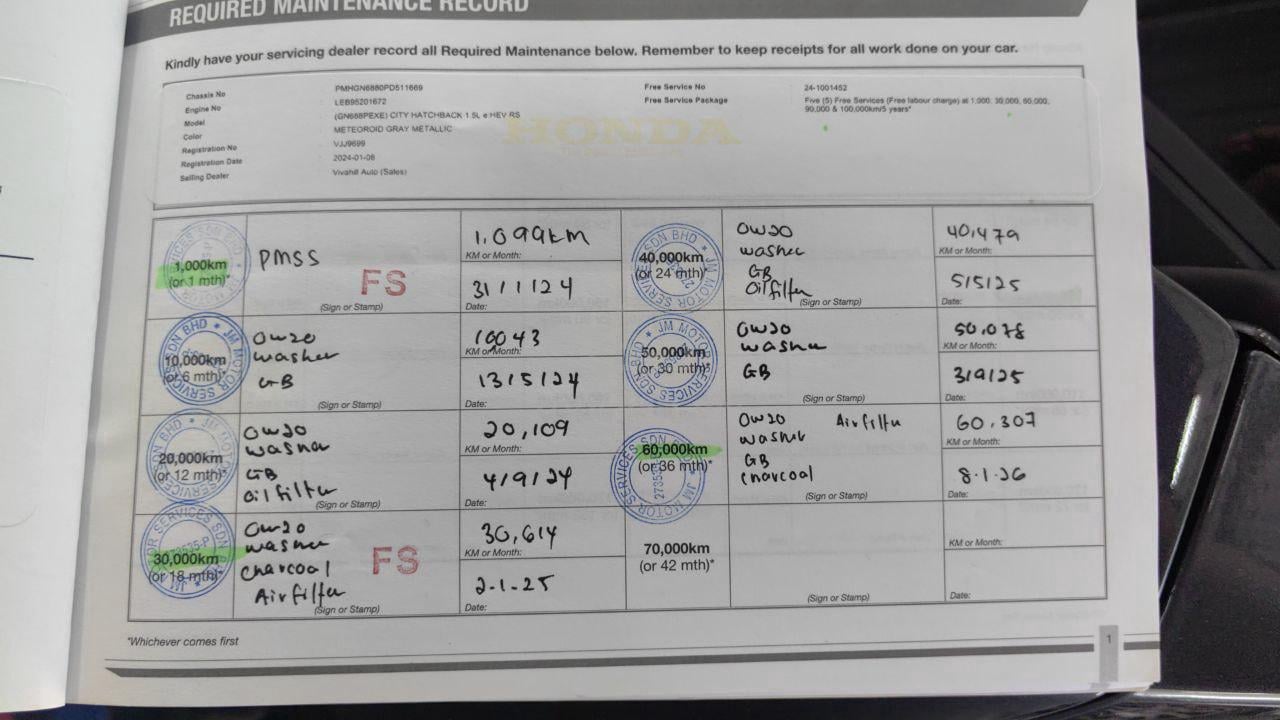 REQUIRED MAINTENANCE RECORD
Kindly have your servicing dealer record all Required Maintenance below. Remember to keep receipts for all work done on your car.
Chassis No PMHGN6880PD511669
Engine No LEB95201672
Model (GN688PEXE) CITY HATCHBACK 1.5L e:HEV RS
Color METEOROID GRAY METALLIC
Registration No VJJ9699
Registration Date 2024-01-08
Selling Dealer Vivahill Auto (Sales)
Free Service No 24-1001452
Free Service Package Five (5) Free Services (Free labour charge) at 1,000, 30,000, 60,000,
90,000 & 100,000km/5 years*
HONDA
1,000km
(or 1 mth)*
PMSS
FS
(Sign or Stamp)
1,099km
KM or Month:
31/1/24
Date:
10,000km
(or 6 mth)*
OW20
washer
GB
(Sign or Stamp)
10043
KM or Month:
13/5/24
Date:
20,000km
(or 12 mth)*
OW20
washer
GB
oil filter
(Sign or Stamp)
20,109
KM or Month:
4/9/24
Date:
30,000km
(or 18 mth)*
OW20
washer
charcoal
Air filter
FS
(Sign or Stamp)
30,614
KM or Month:
2-1-25
Date:
40,000km
(or 24 mth)*
OW20
washer
GB
Oil filter
(Sign or Stamp)
40,479
KM or Month:
5/5/25
Date:
50,000km
(or 30 mth)*
OW20
washer
GB
(Sign or Stamp)
50,078
KM or Month:
3/9/25
Date:
60,000km
(or 36 mth)*
OW20 Air filter
washer
GB
charcoal
(Sign or Stamp)
60,307
KM or Month:
8-1-26
Date:
70,000km
(or 42 mth)*
(Sign or Stamp)
KM or Month:
Date:
*Whichever comes first
1